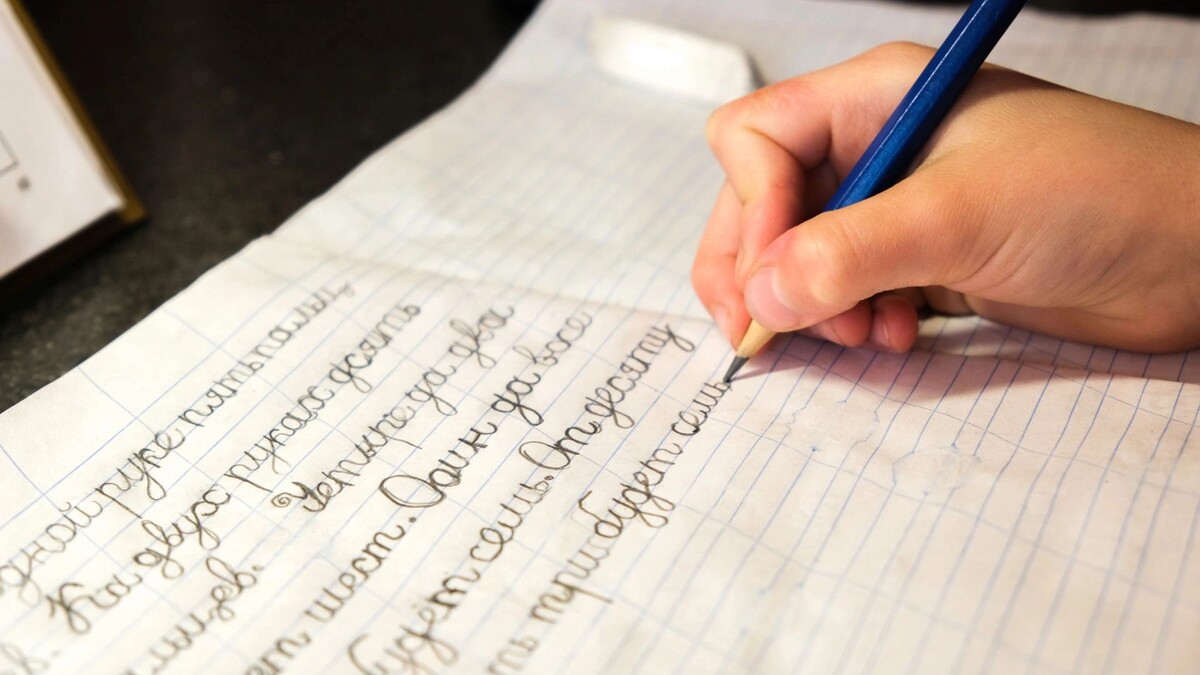 одной руке пять пальц
в. На двух руках десять
альцев. Четыре да два
ет шест. Один да
будет семь. От десяти
ть три будет семь